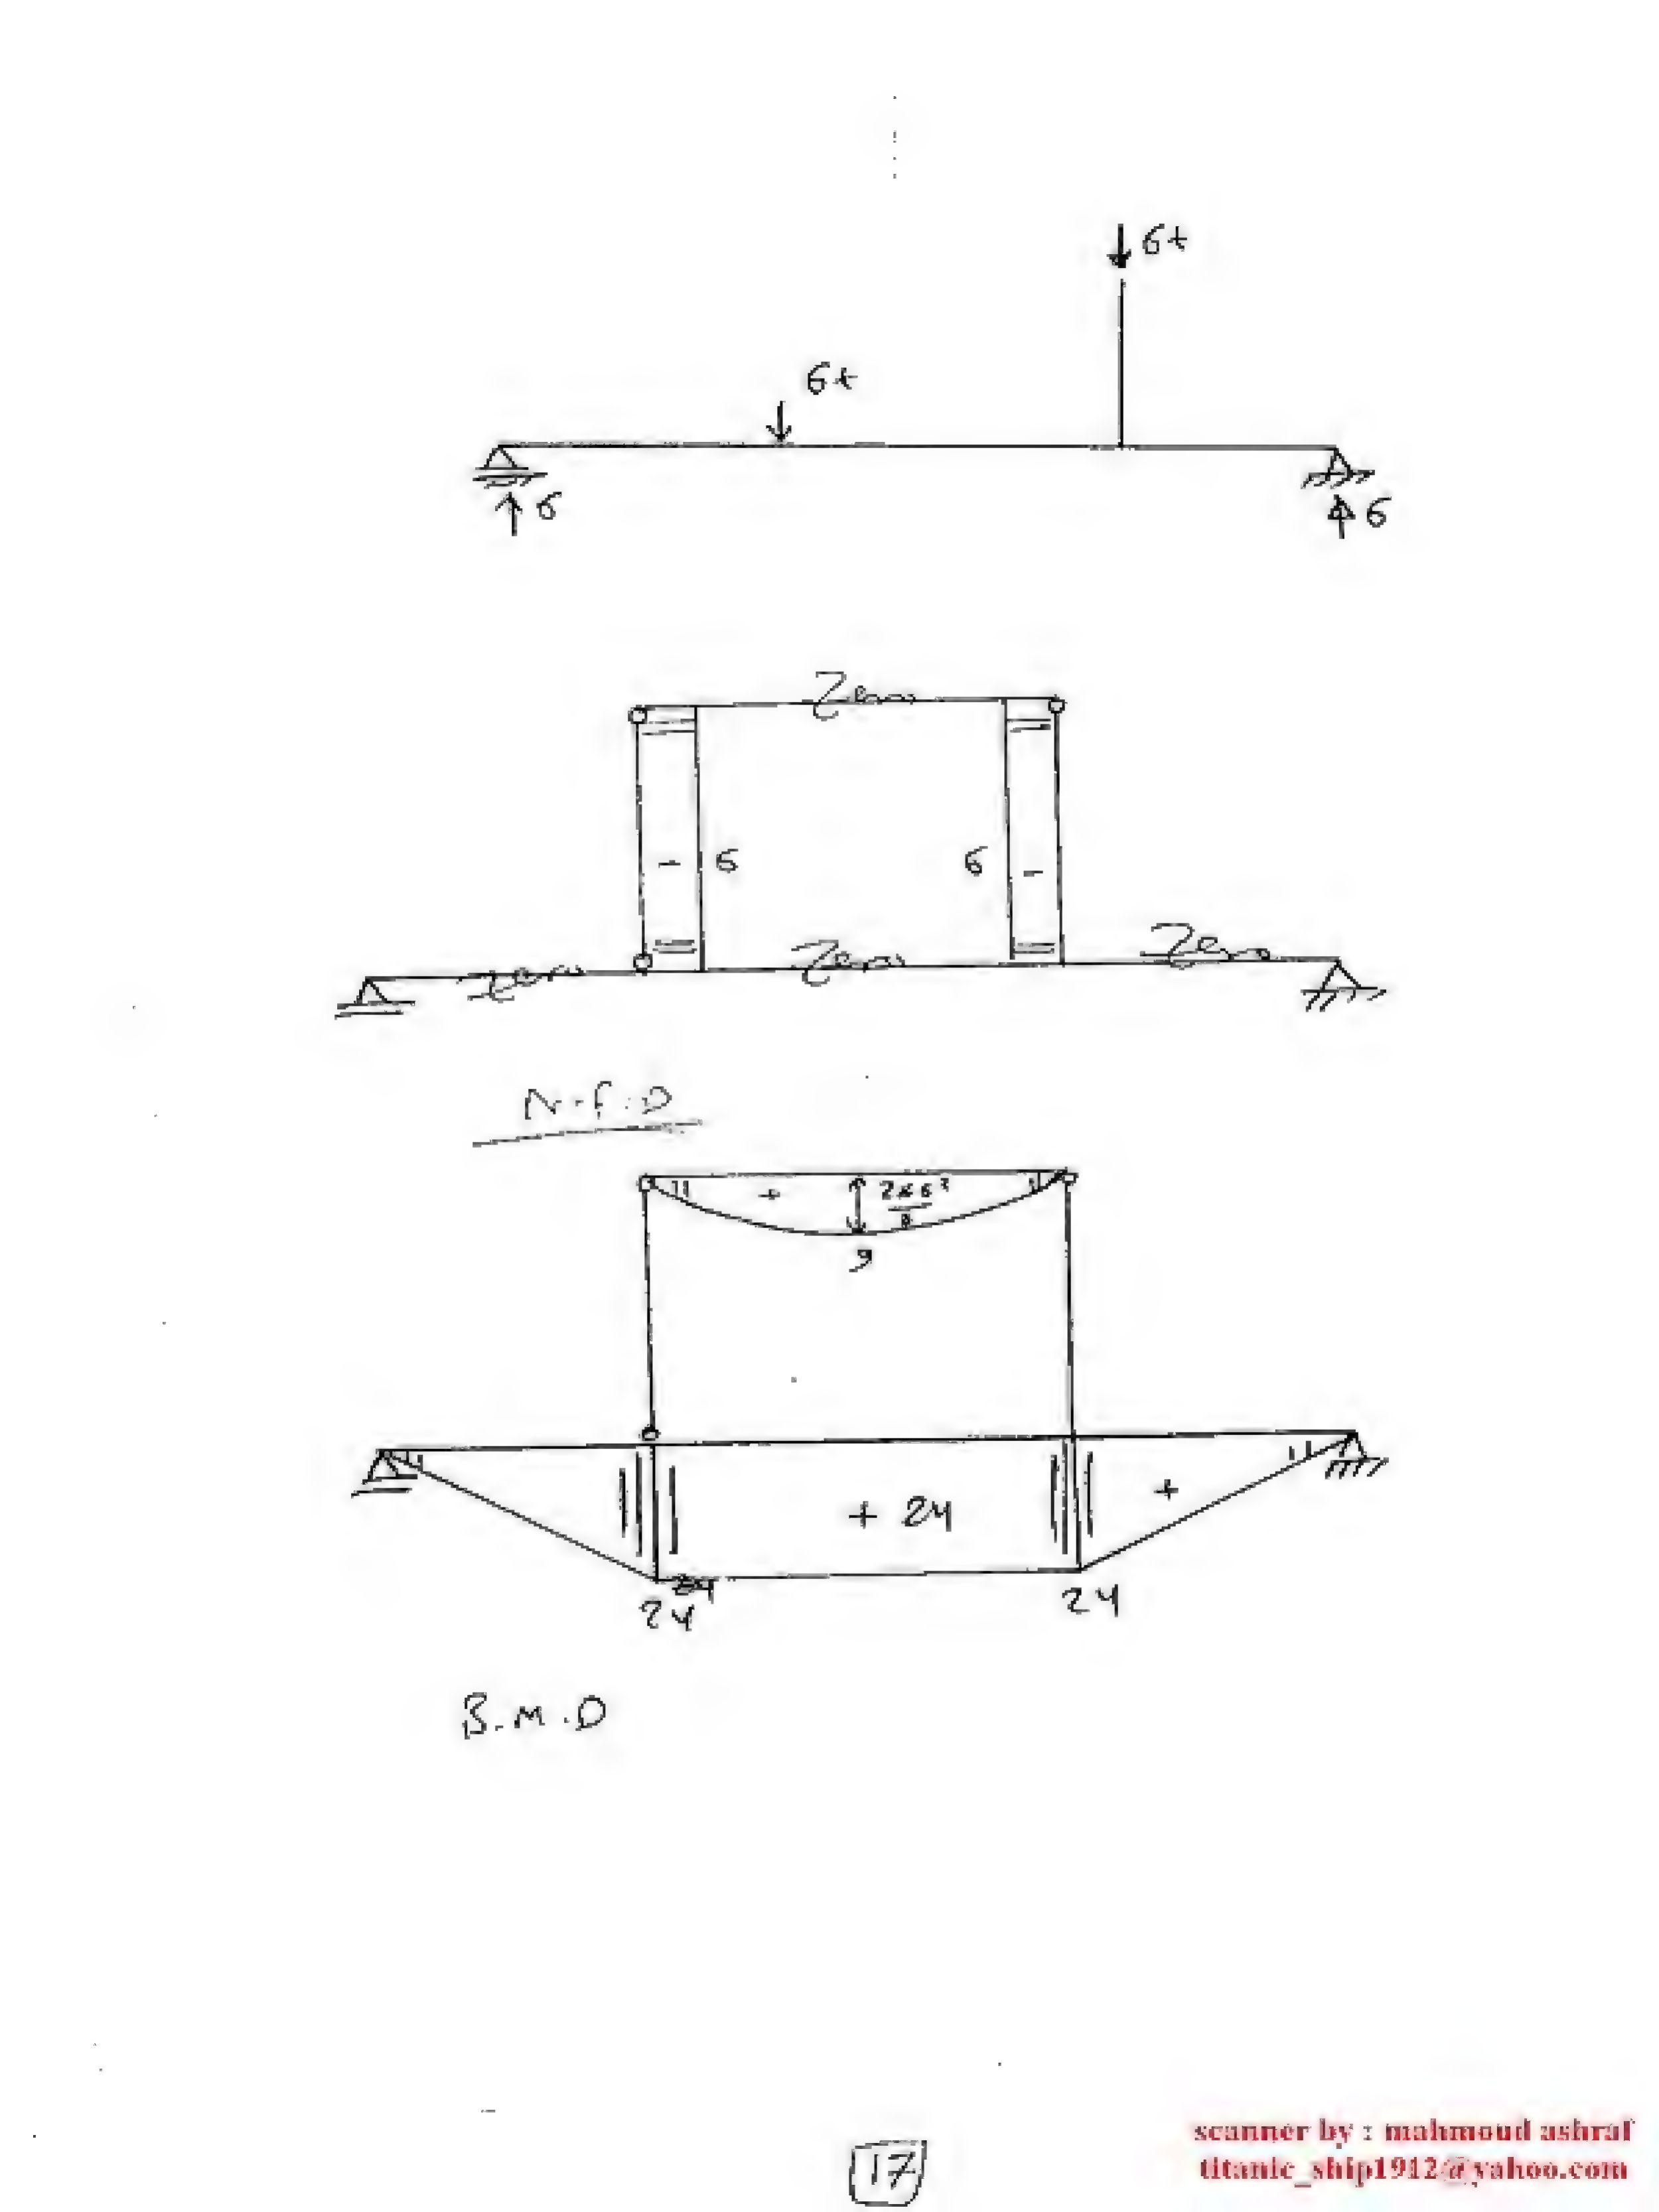 6t
6t
6
6
Zero
6
6
Zero
Zero
Zero
N.F.D
+
2×6²
8
9
+ 24
+
24
24
B.M.D
17
scanner by : mahmoud ashraf
titanic_ship1912@yahoo.com